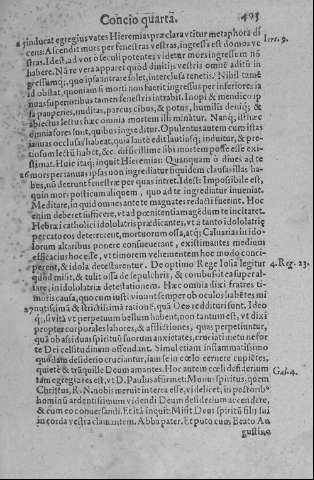 Concio quartã. 405
a3 inducat egregius vates Hieremias præclara vtitur metaphora di
cens: Ascendit mors per fenestras vestras, ingressa est domos ve
stras. Idest, ad vos o seculi potentes videtur mors ingressum nõ
habere. Nã re vera apparet quòd diuitijs vestris omnẽ aditũ in
gressumq́;, quo ipsa intrare solet, interclusa tenetis. Nihil tamẽ
id obstat, quoniam si morti non fuerit ingressus per inferiores ia
nuas superioribus tamen fenestris intrabit. Inopi & mendico ip
sa pauperies, nuditas, parcus cibus, & potus, humilis deniq́; &
abiectus lectus hæc omnia mortem illi minãtur. Nanq́; isthæc
omnia fores sunt, quibus ingreditur. Opulentus autem cum istas
ianuas occlusas habeat, quia lautè edit lautiusq́; induitur, & pre-
tiosum lectũ habet, &c. difficillime sibi mortem posse esse exi-
stimat. Huic itaq; inquit Hieremias: Quanquam ò diues ad te
a6 mors per ianuas ipsas non ingrediatur siquidem clausas illas ha-
bes, nõ deerunt fenestræ per quas intret. Idest: Impossibile est,
quin mors posticum aliquem, quo ad te ingrediatur inueniat.
Meditare, in quid omnes ante te magnates redacti fuerint. Hoc
enim deberet sufficere, vt ad pœnitentiam agẽdum te incitaret.
Hebræi catholici idololatris prædicantes, vt à tanto idololatrię
peccato eos detererent, mortuorum ossa, atq́; Caluarias in ido-
lorum altaribus ponere consueuerant, existimantes medium
efficacius hoc esse, vt timorem vehementem hoc modo conci-
perent, & idola detestarentur. De optimo Rege Iosia legitur 4. Reg. 23.
quòd misit, & tulit ossa de sepulchris, & combussit ea super al-
tare, in idololatriæ detestationem. Hæc omnia dixi fratres ti-
moris causa, quo cum iusti viuant semper ob oculos habẽtes mi
a7 nutissimã & strictissimã rationẽ, quã Deo reddituri sunt. Ideo
q́; si vitã vt perpetuum bellum habent, non tantum est, vt dixi
propter corporales labores, & afflictiones, quas perpetiuntur,
quã ob assiduas spirituũ suorum anxietates, cruciati metu ne forte
Dei celsitudinem offendant. Simul etiam inflammatissimo
quodam desiderio cruciantur, iam se in cœlo cernere cupiẽtes,
quietè & trãquille Deum amantes. Hoc autem cœli desiderium
tam egregia res est, vt D. Paulus affirmet: Munus spiritus, quem Gal. 4.
Christus, R. N. nobis meruit interea esse, videlicet, in pectoribꝰ
hominũ ardentissimum videndi Deum desiderium accendere,
& cum eo conuersandi. Et ità inquit: Misit Deus spiritũ filij sui
in corda vestra clamantem. Abba pater. Et puto cum Beato Au
gustino
Iere. 9.